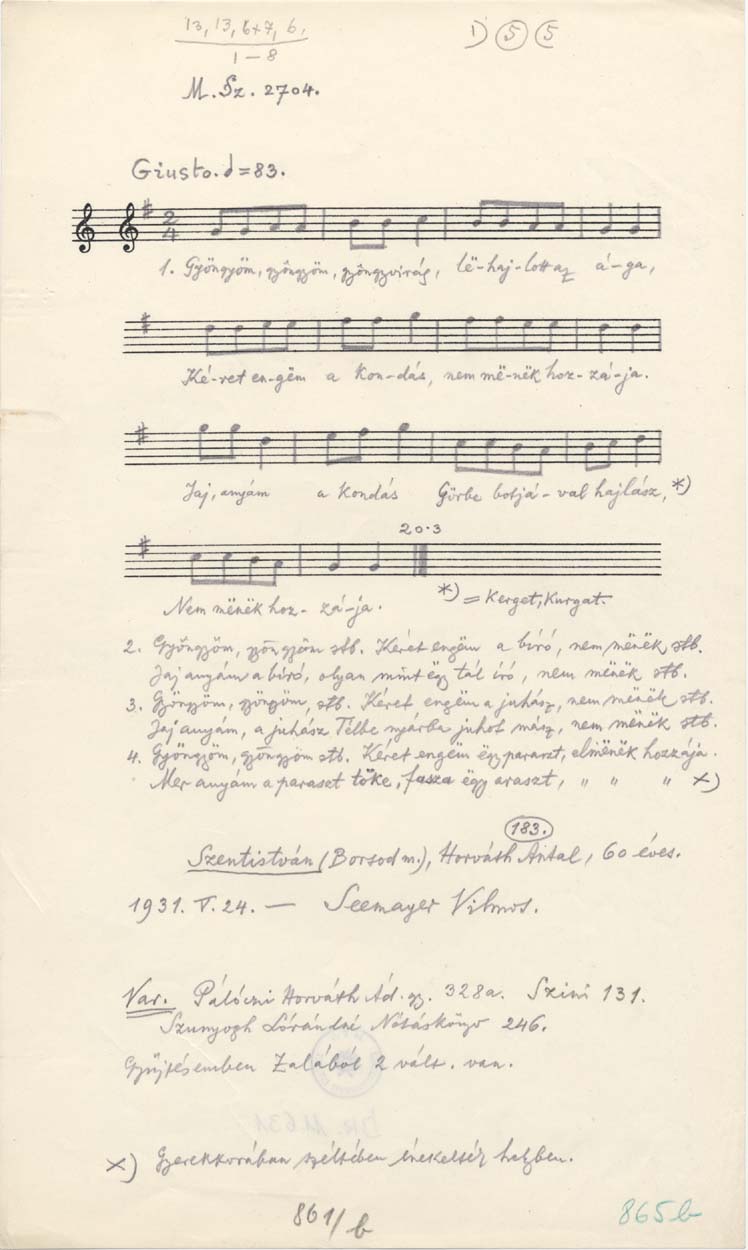 13, 13, 6+7, 6.
1 – 8
1) 5 5
M. Sz. 2704.
Giusto. = 83.
2 4
1. Gyöngyöm, gyöngyöm, gyöngyvirág, lë-haj-lott az á-ga,
Ké-ret en-gëm a kon-dás, nem më-nëk hoz-zá-ja.
Jaj, anyám a kondás Görbe botjá-val hajlász, *)
20.3
Nem mënëk hoz-zá-ja. *) = kerget, kurgat.
2. Gyöngyöm, gyöngyöm stb. Kéret engëm a bíró, nem mënëk stb.
Jaj anyám a bíró, olyan mint ëgy tál író, nem mënëk stb.
3. Gyöngyöm, gyöngyöm, stb. Kéret engëm a juhász, nem mënëk stb.
Jaj anyám, a juhász Télbe nyárba juhot mász, nem mënëk stb.
4. Gyöngyöm, gyöngyöm stb. Kéret engëm ëgy paraszt, elmënëk hozzája.
Mer anyám a paraszt töke, fasza ëgy araszt, " " " x)
183.
Szentistván (Borsod m.), Horváth Antal, 60 éves.
1931. V. 24. — Seemayer Vilmos.
Var. Pálóczi Horváth Ád. gy. 328a. Szini 131.
Szunyogh Lórándné Nótáskönyv 246.
Gyűjtésemben Zalából 2 vált. van.
x) Gyerekkorában széltében énekelték helyben.
861/b
865b